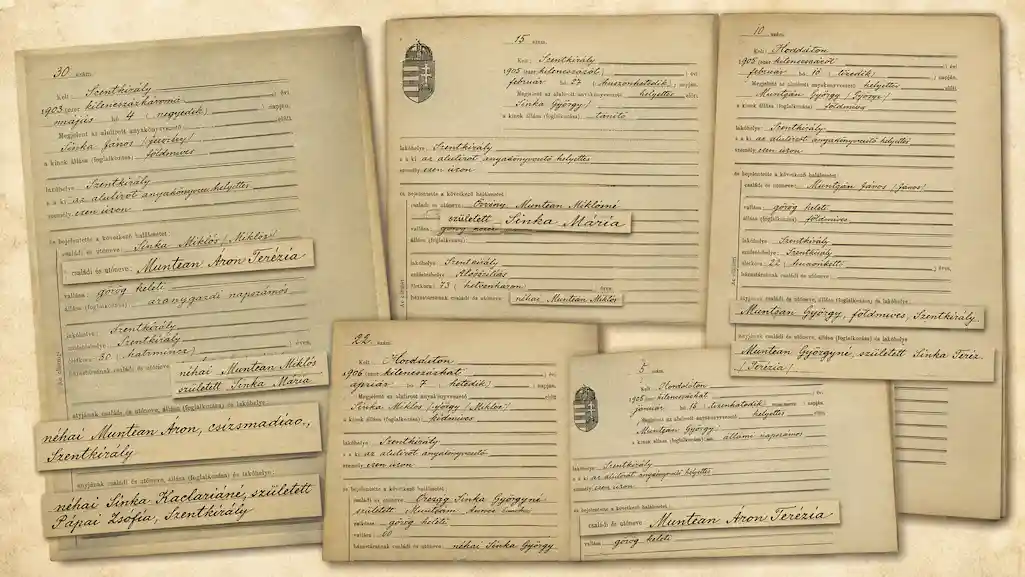 30 szám.
Kelt: Szentkirály
1903 (ezer kilenczszázhárom
május hó 4 (negyedik) napján.
Megjelent az alulírott anyakönyvvezető előtt
Sinka János
a kinek állása (foglalkozása): földmives
lakóhelye: Szentkirály
s a ki az alulírót anyakönyvvez helyettes
személyesen
és bejelentette a következő halálesetet:
Sinka Miklós (Miklós)
családi és utóneve: Muntean Aron Terézia
vallása: görög keleti
állása (foglalkozása): napszámos
lakóhelye: Szentkirály
Szentkirály
életkora: 30 (harmincz) éves
házastársának családi és utóneve: néhai Muntean Miklós
született Sinka Mária
atyjának családi és utóneve, állása (foglalkozása) és lakóhelye:
néhai Muntean Aron, csizsmadiao.,
Szentkirály
anyjának családi és utóneve, állása (foglalkozása) és lakóhelye:
néhai Sinka Kaclariáné, született
Pápai Zsófia, Szentkirály
15 szám.
Kelt: Szentkirály
1905 (ezer kilenczszázöt) évi
február hó 27 napján.
Megjelent az alulírott anyakönyvvezető helyettes előtt
Sinka György
a kinek állása (foglalkozása): tanító
lakóhelye: Szentkirály
s a ki az alulírót anyakönyvvezető helyettes
személyesen
és bejelentette a következő halálesetet:
családi és utóneve: Özviny Muntean Miklósné
született Sinka Mária
vallása: görög keleti
állása (foglalkozása):
lakóhelye: Szentkirály
születéshelye:
életkora: 73 (hetvenhárom) éves
házastársának családi és utóneve: néhai Muntean Miklós
10 szám.
Kelt: Hordóston
1905 (ezer kilenczszázöt) évi
február hó 16 napján.
Megjelent az alulírott anyakönyvvezető helyettes előtt
Muntgán György
a kinek állása (foglalkozása): földmives
lakóhelye: Szentkirály
s a ki az alulírót anyakönyvvezető helyettes
személyesen
és bejelentette a következő halálesetet:
családi és utóneve: Muntgán János (János)
vallása: görög keleti
állása (foglalkozása): földmives
lakóhelye: Szentkirály
születéshelye: Szentkirály
életkora: 22 éves,
házastársának családi és utóneve:
atyjának családi és utóneve, állása (foglalkozása) és lakóhelye:
Muntean György, földmives, Szentkirály
anyjának családi és utóneve, állása (foglalkozása) és lakóhelye:
Muntean Györgyné, született Sinka Teréz.
(Terézia)
22 szám.
Kelt: Hordóston
1906 (ezer kilenczszázhat) évi
április hó 7 napján.
Megjelent az alulírott anyakönyvvezető előtt
Sinka Miklós
a kinek állása (foglalkozása):
lakóhelye: Szentkirály
s a ki az alulírót anyakönyvvezető
személyesen
és bejelentette a következő halálesetet:
családi és utóneve: Sinka Györgyné
született
görög keleti
vallása:
házastársának családi és utóneve: néhai Sinka György
5 szám.
Kelt: Hordóston
1906 (ezer kilenczszázhat) évi
január hó 16 napján.
Megjelent az alulírott anyakönyvvezető helyettes előtt
Muntean György
a kinek állása (foglalkozása): napszámos
lakóhelye: Szentkirály
s a ki az alulírót anyakönyvvezető helyettes
személyesen
és bejelentette a következő halálesetet:
családi és utóneve: Muntean Áron Terézia
vallása: görög keleti